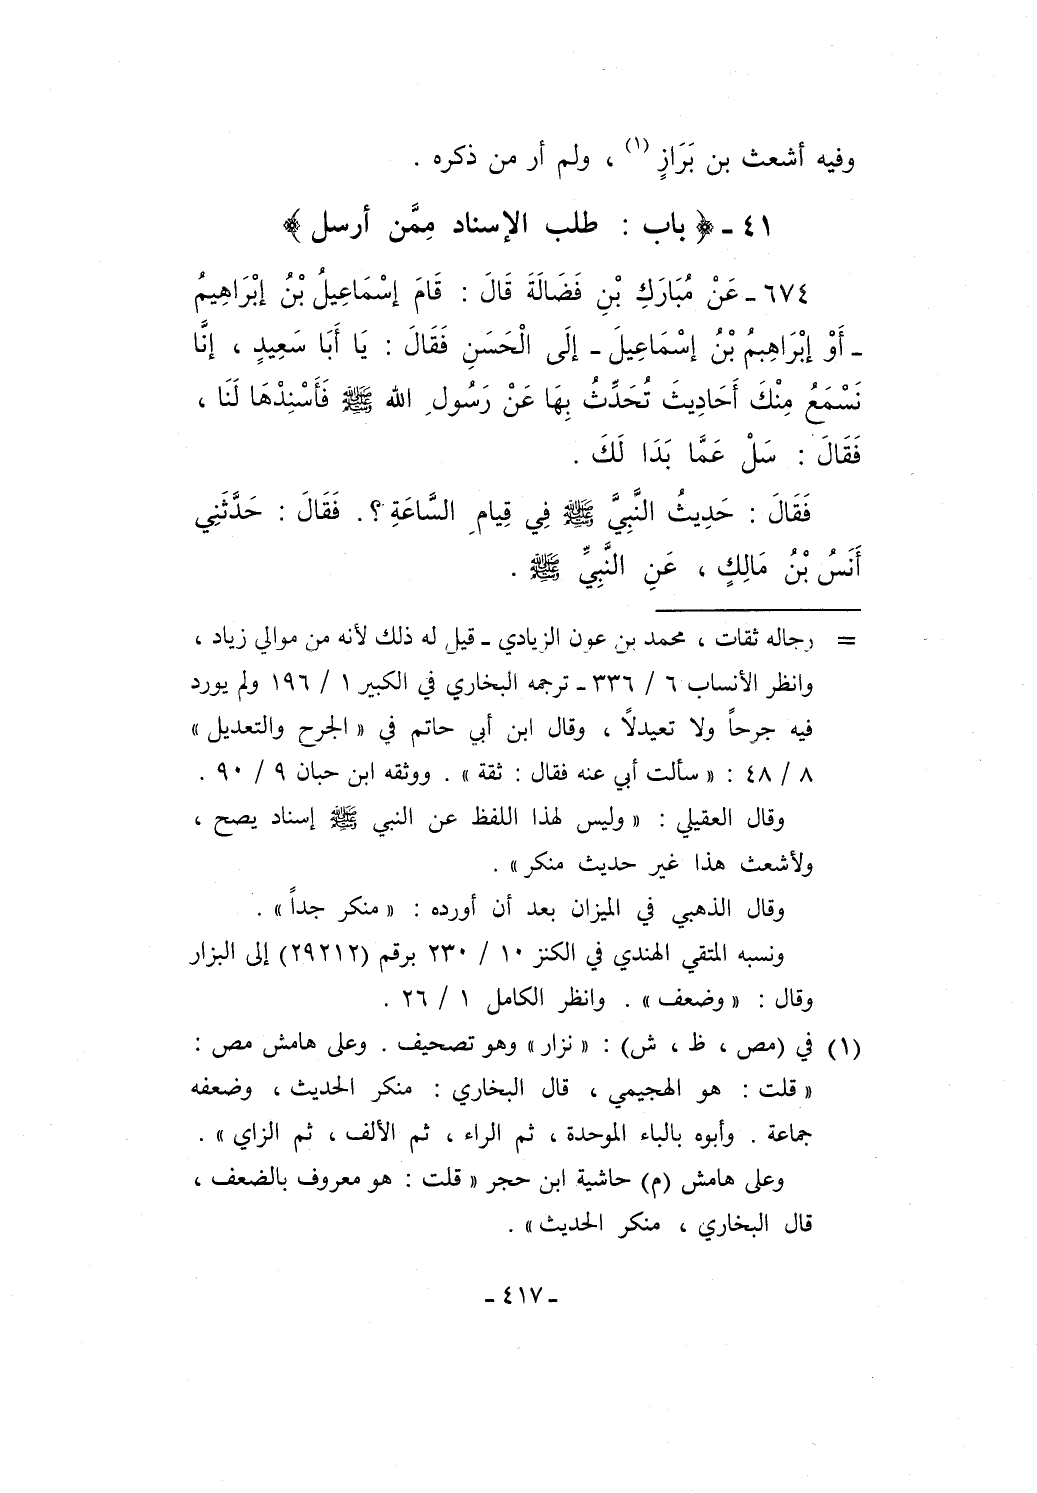 وفيه أشعث بن بَرَازٍ (١) ، ولم أر من ذكره .
٤١ - ﴿ باب : طلب الإسناد مِمَّن أرسل ﴾
٦٧٤ - عَنْ مُبَارَكِ بْنِ فَضَالَةَ قَالَ : قَامَ إسْمَاعِيلُ بْنُ إبْرَاهِيمُ
- أَوْ إبْرَاهِيمُ بْنُ إسْمَاعِيلَ - إلَى الْحَسَنِ فَقَالَ : يَا أَبَا سَعِيدٍ ، إنَّا
نَسْمَعُ مِنْكَ أَحَادِيثَ تُحَدِّثُ بِهَا عَنْ رَسُولِ الله ﷺ فَأَسْنِدْهَا لَنَا ،
فَقَالَ : سَلْ عَمَّا بَدَا لَكَ .
فَقَالَ : حَدِيثُ النَّبِيَّ ﷺ فِي قِيامِ السَّاعَةِ ؟. فَقَالَ : حَدَّثَنِي
أَنَسُ بْنُ مَالِكٍ ، عَنِ النَّبِيِّ ﷺ .
= رجاله ثقات ، محمد بن عون الزيادي - قيل له ذلك لأنه من موالي زياد ،
وانظر الأنساب ٦ / ٣٣٦ - ترجمه البخاري في الكبير ١ / ١٩٦ ولم يورد
فيه جرحاً ولا تعيدلاً ، وقال ابن أبي حاتم في « الجرح والتعديل »
٨ / ٤٨ : « سألت أبي عنه فقال : ثقة » . ووثقه ابن حبان ٩ / ٩٠ .
وقال العقيلي : « وليس لهذا اللفظ عن النبي ﷺ إسناد يصح ،
ولأشعث هذا غير حديث منكر » .
وقال الذهبي في الميزان بعد أن أورده : « منكر جداً » .
ونسبه المتقي الهندي في الكنز ١٠ / ٢٣٠ برقم (٢٩٢١٢) إلى البزار
وقال : « وضعف » . وانظر الكامل ١ / ٢٦ .
(١) في (مص ، ظ ، ش) : « نزار » وهو تصحيف . وعلى هامش مص :
« قلت : هو الهجيمي ، قال البخاري : منكر الحديث ، وضعفه
جماعة . وأبوه بالباء الموحدة ، ثم الراء ، ثم الألف ، ثم الزاي » .
وعلى هامش (م) حاشية ابن حجر « قلت : هو معروف بالضعف ،
قال البخاري ، منكر الحديث » .
- ٤١٧ -